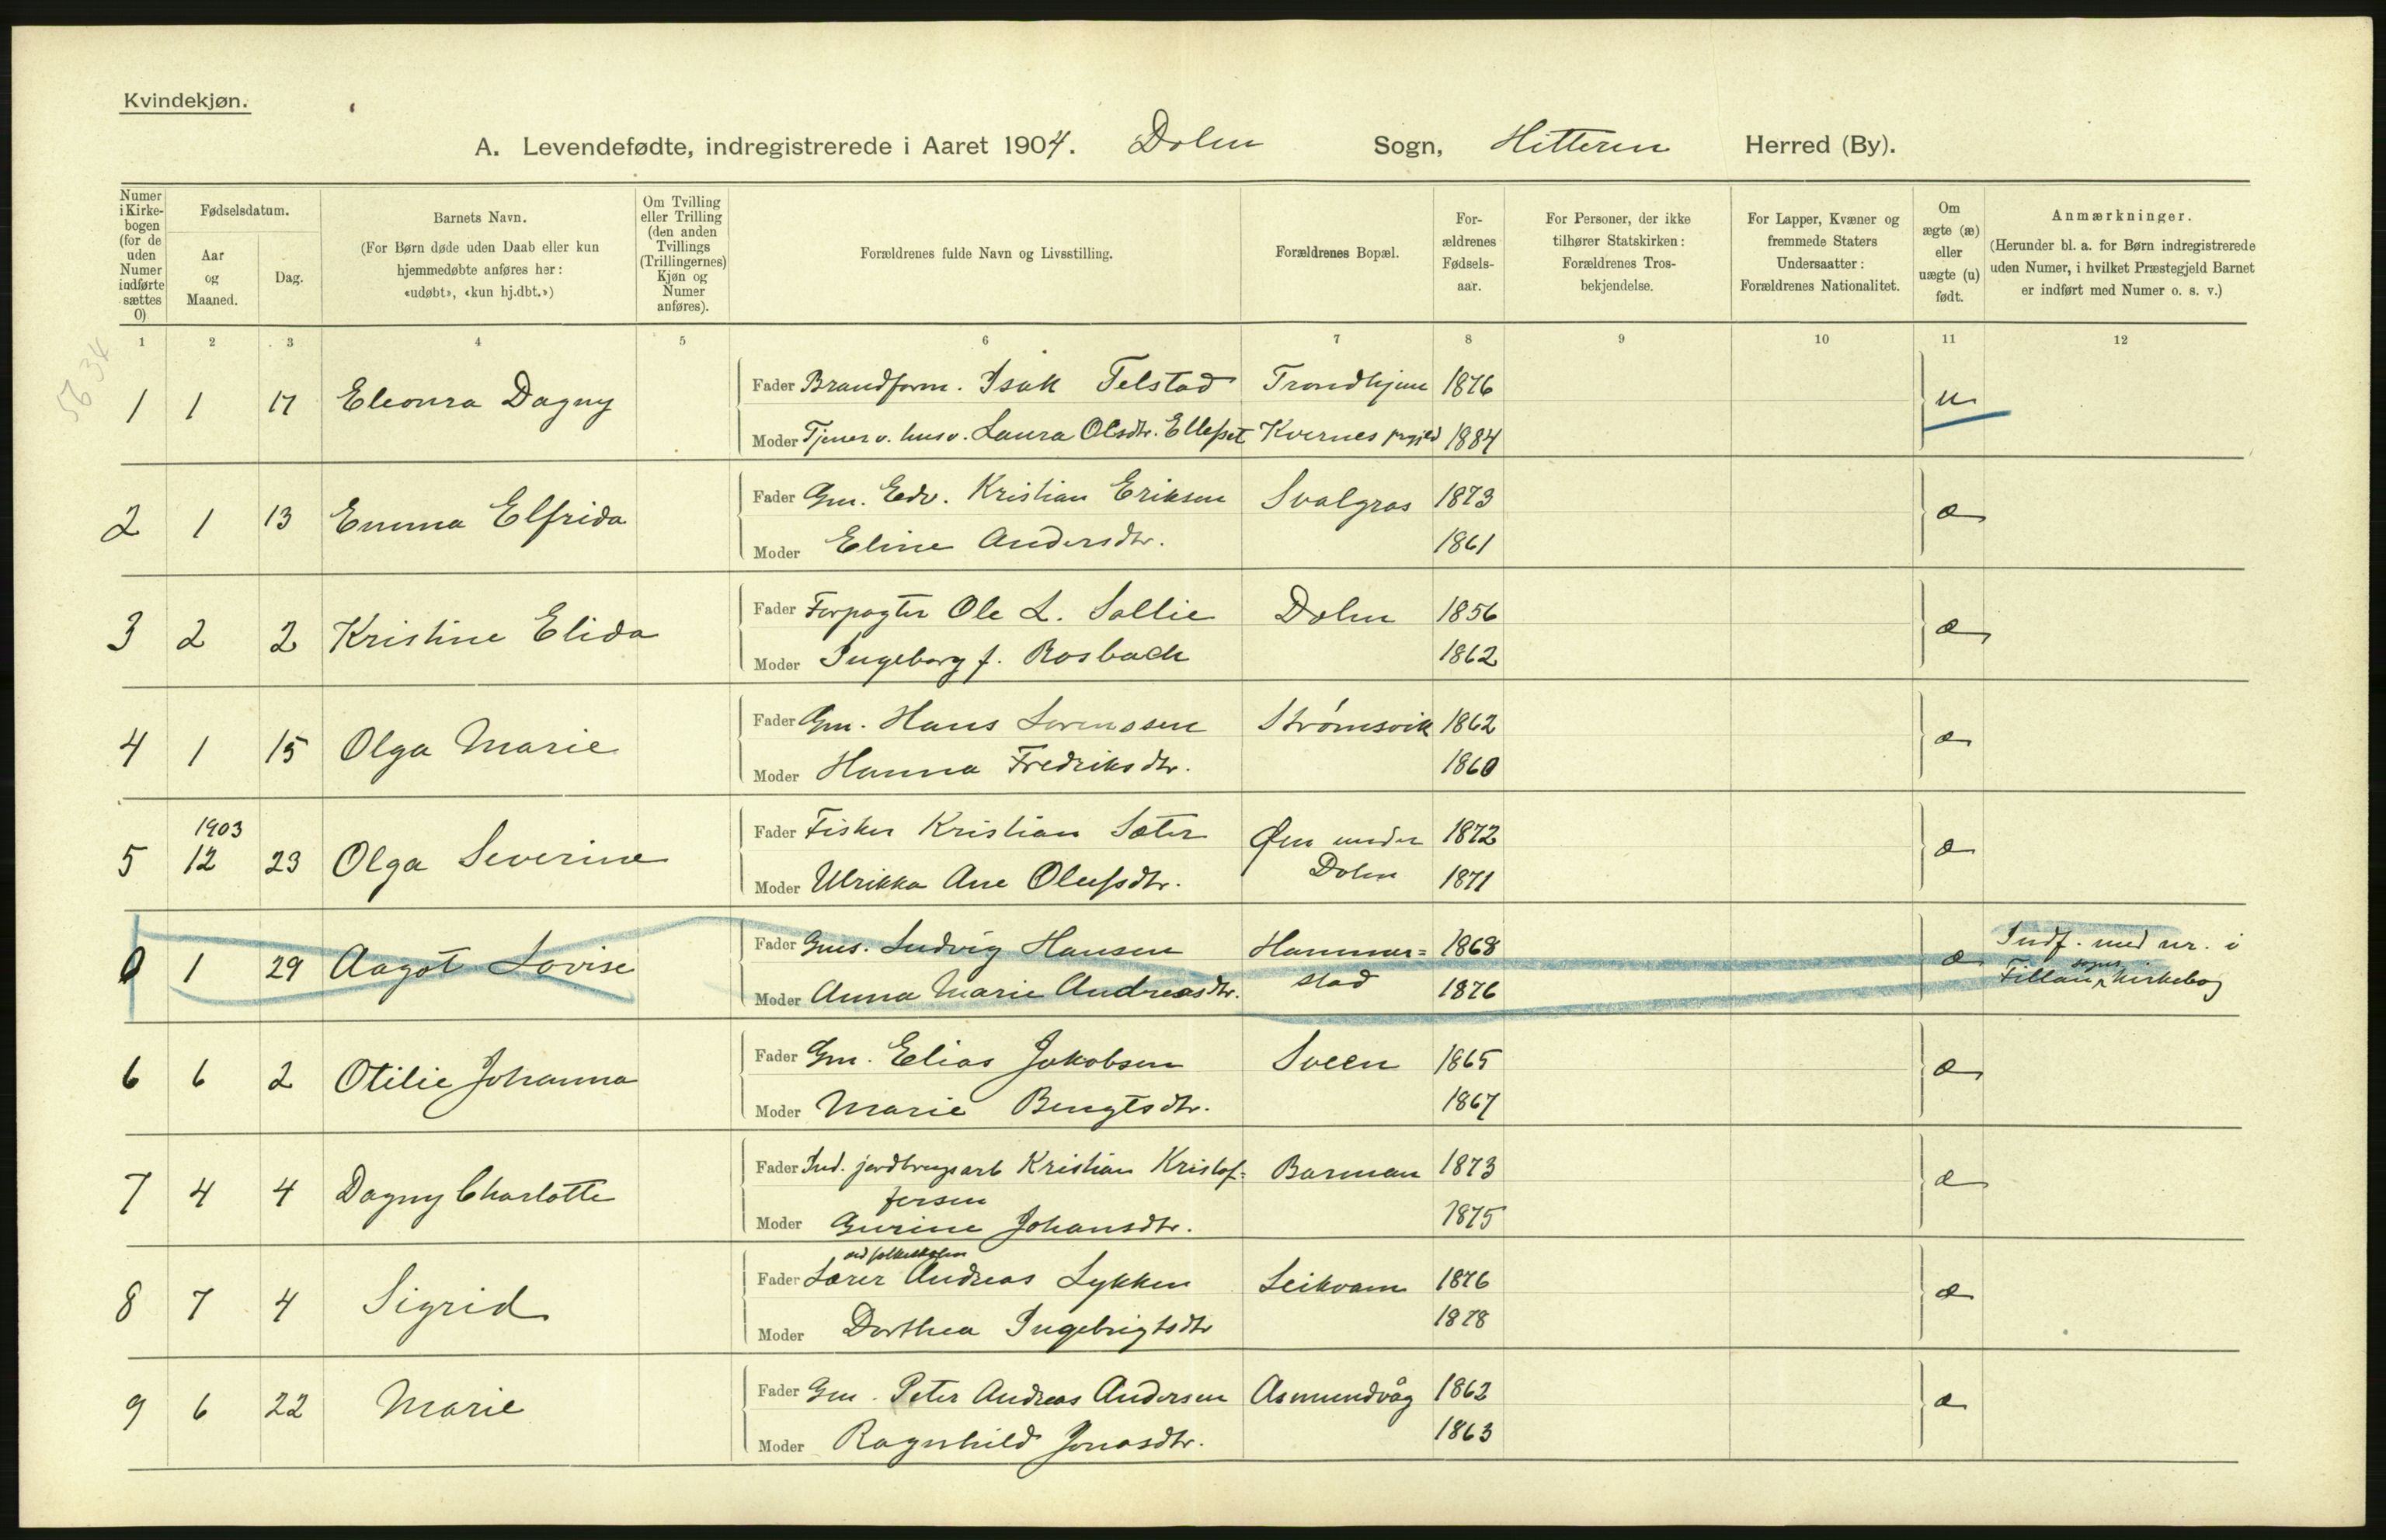 Kvindekjøn.
A. Levendefødte, indregistrerede i Aaret 1904. Dolm Sogn, Hitteren Herred (By).
Numer i Kirkebogen (for de uden Numer indførte sættes 0)
Fødselsdatum.
Aar og Maaned.
Dag.
Barnets Navn.
(For Børn døde uden Daab eller kun hjemmedøbte anføres her: «udøbt», «kun hj.dbt.»)
Om Tvilling eller Trilling (den anden Tvillings (Trillingernes) Kjøn og Numer anføres).
Forældrenes fulde Navn og Livsstilling.
Forældrenes Bopæl.
Forældrenes Fødselsaar.
For Personer, der ikke tilhører Statskirken: Forældrenes Trosbekjendelse.
For Lapper, Kvæner og fremmede Staters Undersaatter: Forældrenes Nationalitet.
Om ægte (æ) eller uægte (u) født.
Anmærkninger.
(Herunder bl. a. for Børn indregistrerede uden Numer, i hvilket Præstegjeld Barnet er indført med Numer o. s. v.)
1 2 3 4 5 6 7 8 9 10 11 12
56 34
1 1 17 Eleonra Dagny Fader Brandform. Isak Telstad Trondhjem 1876 u
Moder Tjener v. husv. Laura Olsdtr. Ellefset Kvernes prgjed 1884
2 1 13 Emma Elfrida Fader Gm. Edv. Kristian Eriksen Svalgras 1873 æ
Moder Eline Andersdtr. 1861
3 2 2 Kristine Elida Fader Forpagter Ole L. Sollie Dolm 1856 æ
Moder Ingeborg f. Rosbach 1862
4 1 15 Olga Marie Fader Gm. Hans Lorenssen Strømsvik 1862 æ
Moder Hanna Fredriksdtr. 1860
1903
5 12 23 Olga Severine Fader Fisker Kristian Sæter Øen under 1872 æ
Moder Ulrikka Ane Olufsdtr. Dolm 1871
0 1 29 Aagot Lovise Fader Gms. Ludvig Hansen Hammer= 1868 æ Indf. med nr. i
Moder Anna Marie Andreasdtr. stad 1876 Fillan sogns kirkebog
6 6 2 Otilie Johanna Fader Gm. Elias Jakobsen Sveen 1865 æ
Moder Marie Bengtsdtr. 1867
7 4 4 Dagny Charlotte Fader Ind. jordbrugsarb Kristian Kristof= Barman 1873 æ
fersen
Moder Gurine Johansdtr. 1875
ved folkeskolen
8 7 4 Sigrid Fader Lærer Andreas Lykken Leikvam 1876 æ
Moder Dorthea Ingebrigtsdtr 1878
9 6 22 Marie Fader Gm. Peter Andreas Andersen Asmundvåg 1862 æ
Moder Ragnhild Jonasdtr. 1863